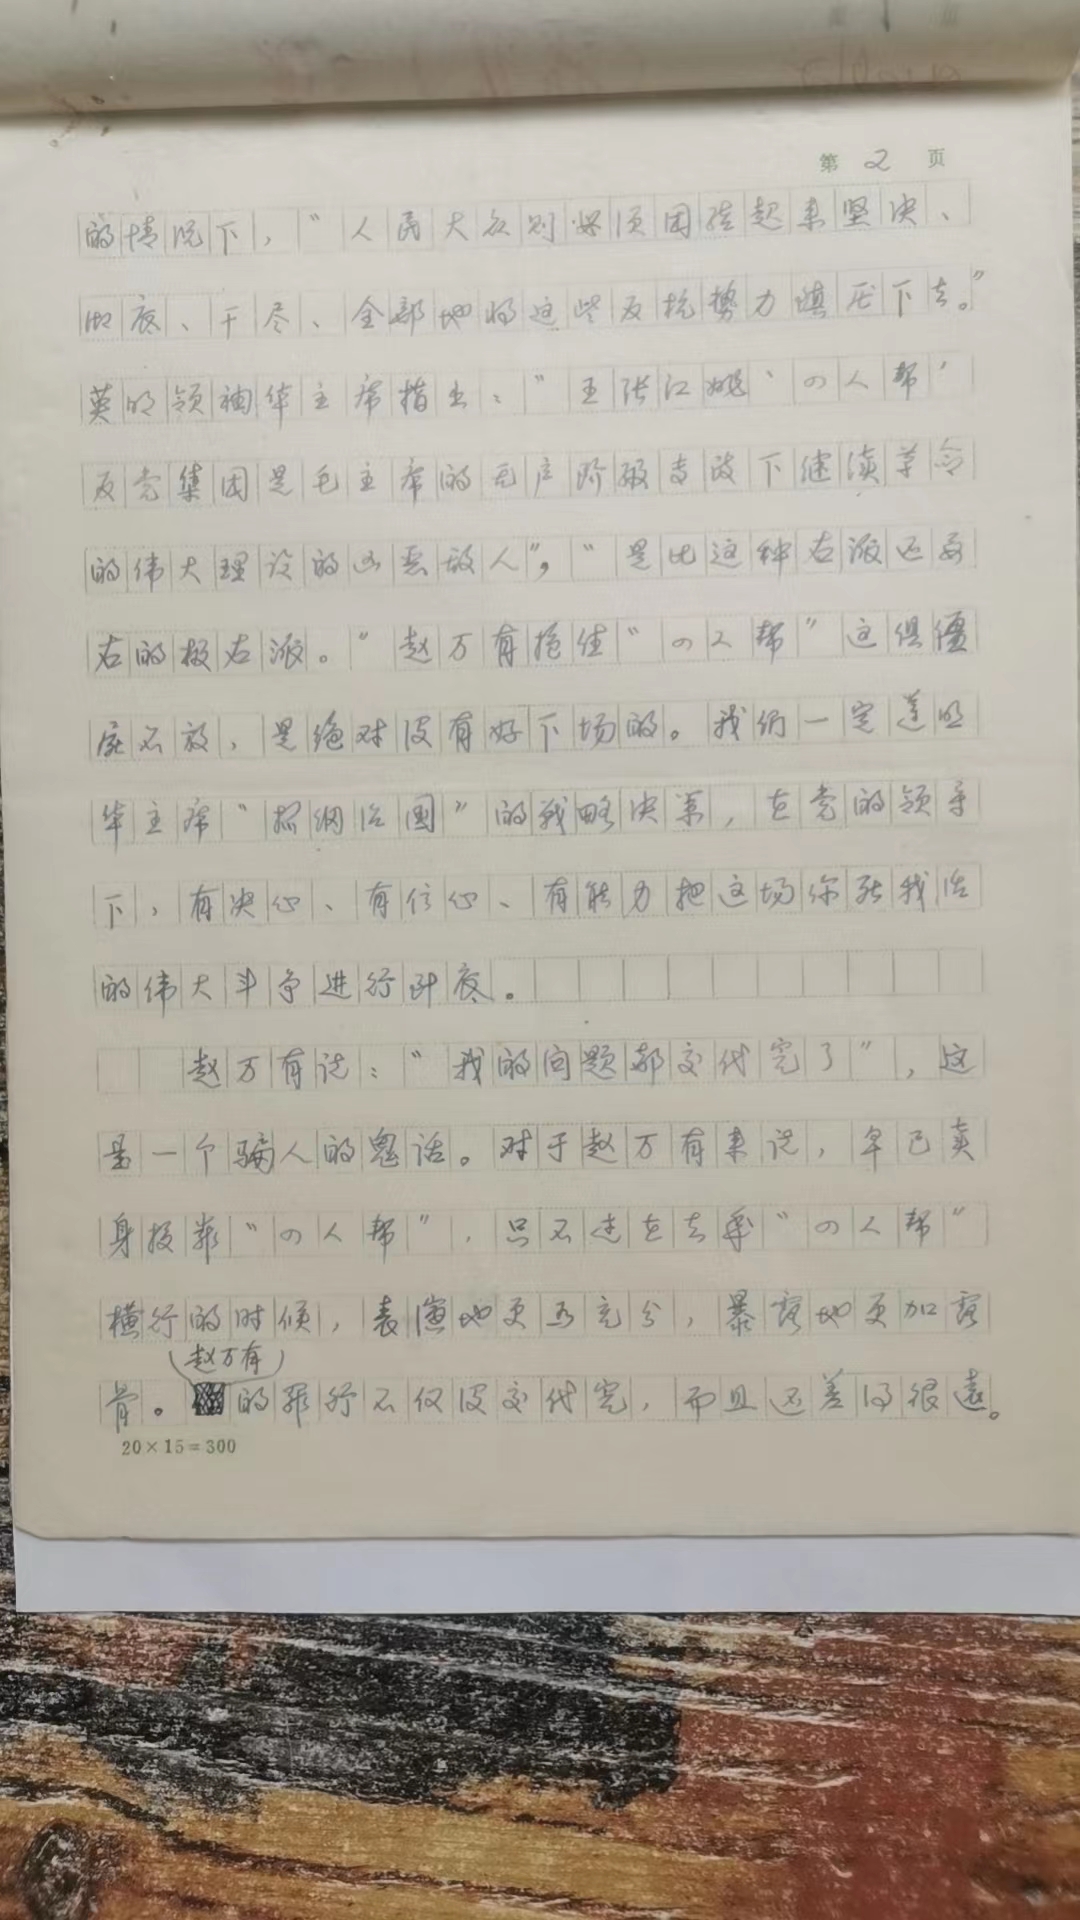 第 2 页
的情况下，“人民大众则必须团结起来坚决、
彻底、干尽、全部地将这些反抗势力镇压下去。”
英明领袖华主席指出：“王张江姚‘四人帮’
反党集团是毛主席的无产阶级专政下继续革命
的伟大理论的凶恶敌人”，“是比这种右派还要
右的极右派。”赵万有抱住“四人帮”这俱僵
尸不放，是绝对没有好下场的。我们一定遵照
华主席“抓纲治国”的战略决策，在党的领导
下，有决心、有信心、有能力把这场你死我活
的伟大斗争进行到底。
赵万有说：“我的问题都交代完了”，这
是一个骗人的鬼话。对于赵万有来说，早已卖
身投靠“四人帮”，只不过在去年“四人帮”
横行的时候，表演地更为充分，暴露地更加露
骨。赵万有的罪行不仅没交代完，而且还差得很远。
20×15=300